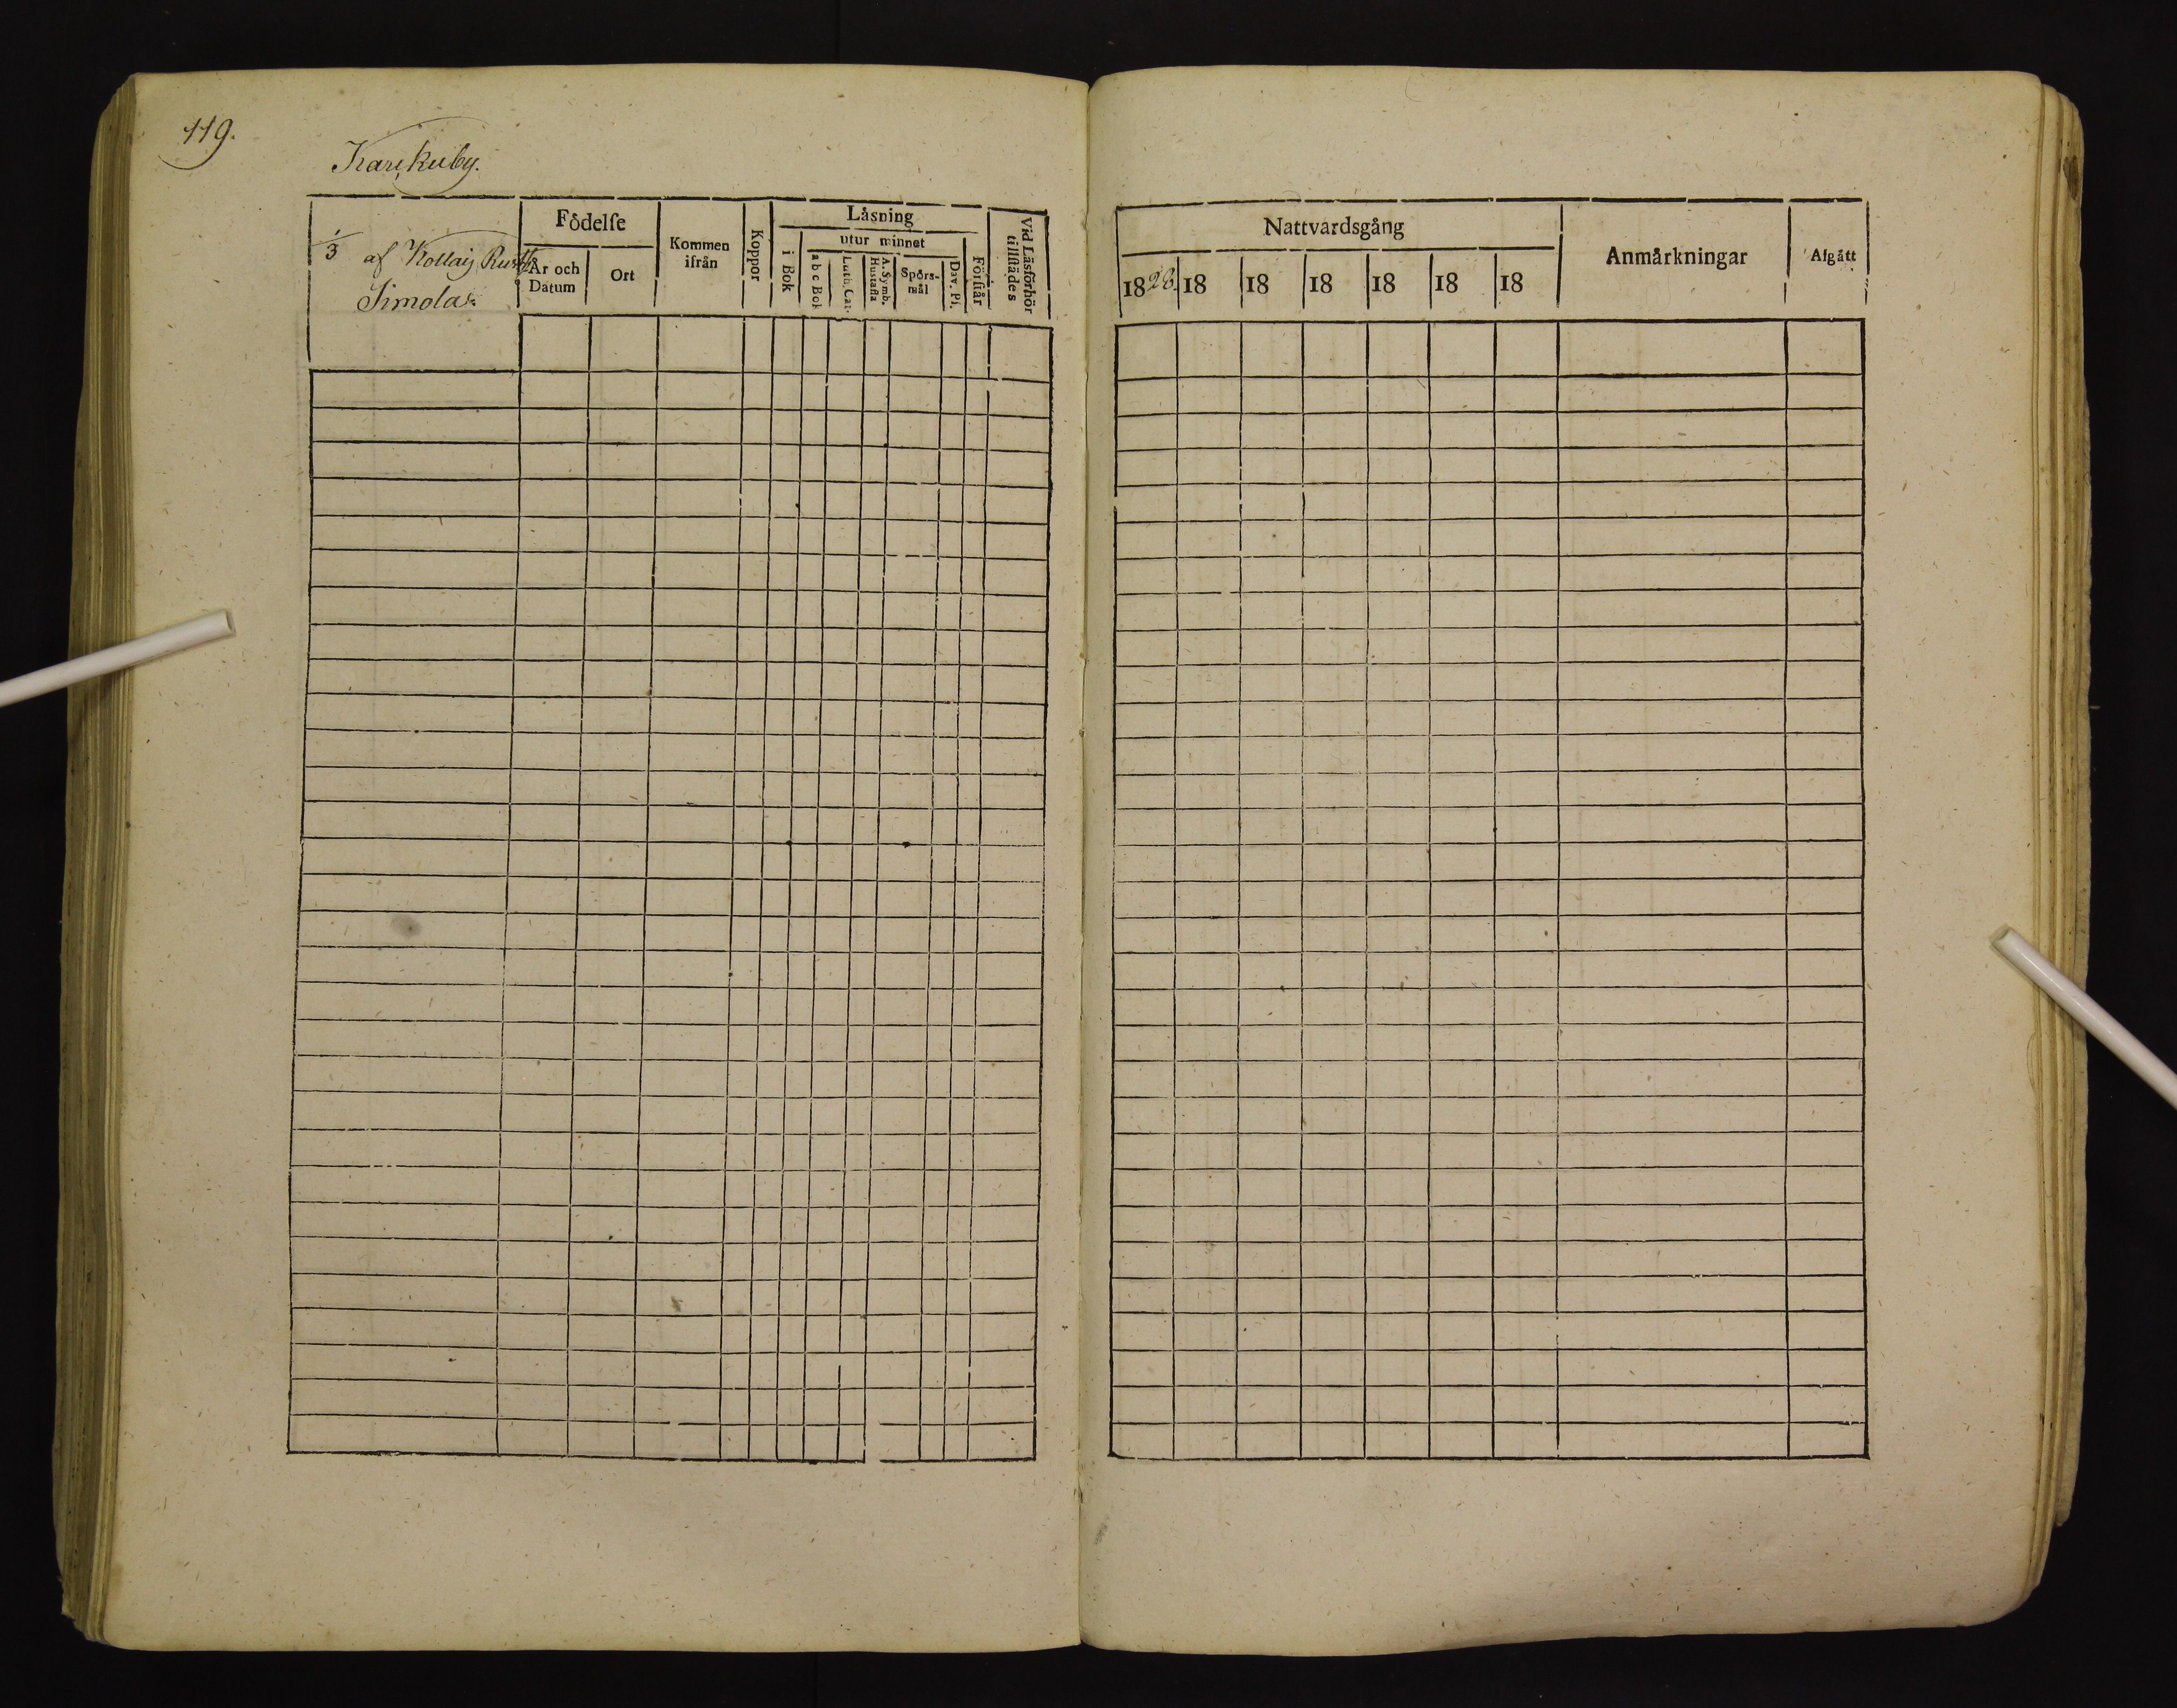 119.
Karkuby.
1/3 af Kollaig Rustg
Simola.
Födelſe
År och Datum
Ort
Kommen ifrån
Koppor
Låsning
i Bok
utur minnet
a b c Bok
Luth. Cat.
A. Symb. Hustafla
Spörs-mål
Dav. Pſ.
Förſtår
Vid Låsförhör tillſtådes
Nattvardsgång
1828. 18 18 18 18 18 18
Anmårkningar
Afgått